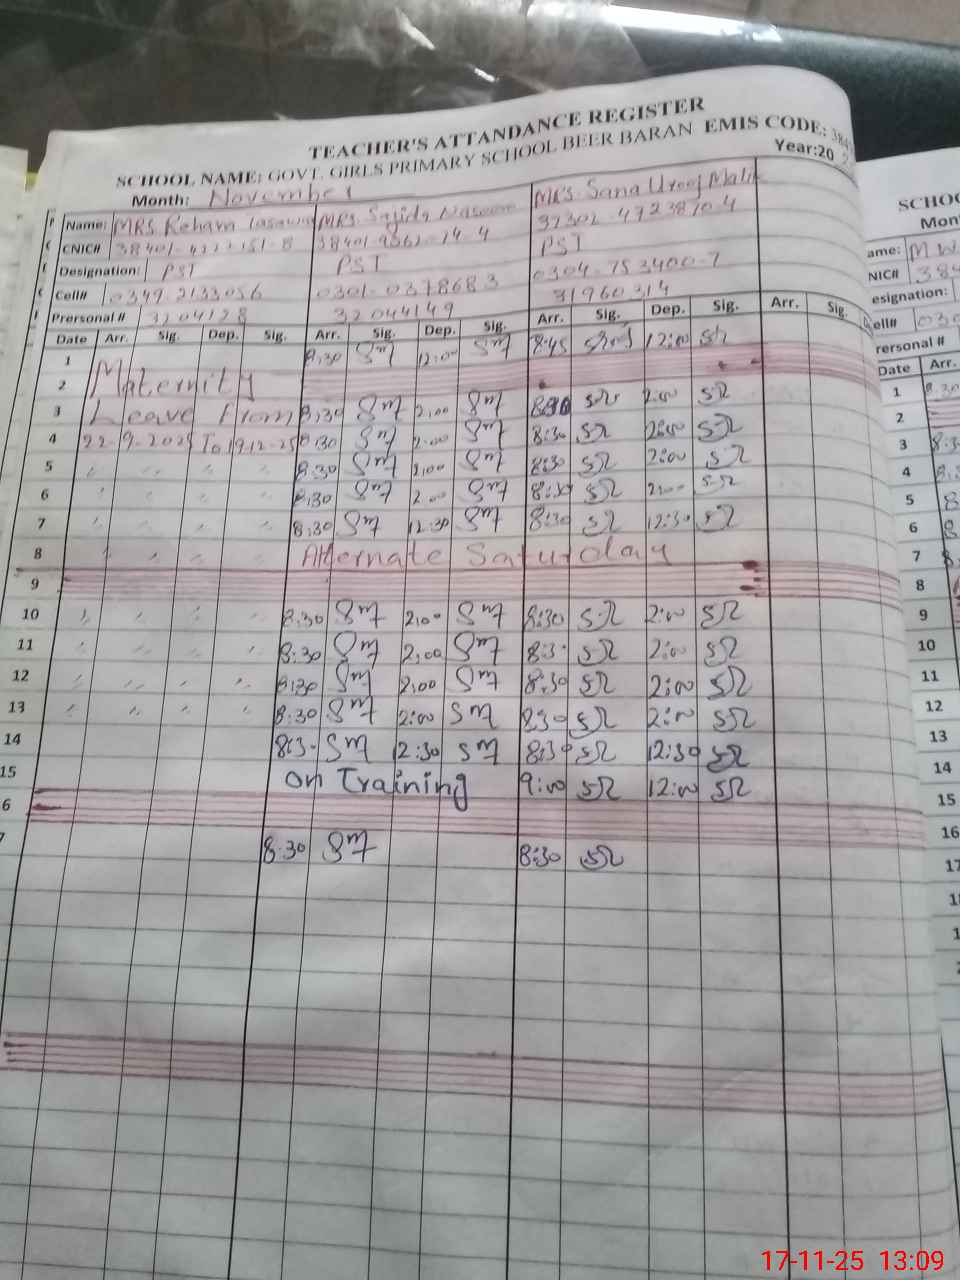 TEACHER'S ATTANDANCE REGISTER
SCHOOL NAME: GOVT. GIRLS PRIMARY SCHOOL BEER BARAN EMIS CODE: 384
Month: November Year:20 2
Name: MRS. Reham Tasawar MRS. Sajida Naseem MRS. Sana Urooj Malik
CNIC# 38401-4222151-8 38401-9562-14-4 37302-4723870-4
Designation: PST PST PST
Cell# 0349 2133056 0301-0378683 0304-753400-7
Prersonal # 3204128 32044149 31960314
Date Arr. Sig. Dep. Sig. Arr. Sig. Dep. Sig. Arr. Sig. Dep. Sig. Arr. Sig.
1 8:30 Sm 12:00 Sm 8:45 12:00 SR
2 Maternity
3 Leave From 8:30 Sm 2:00 Sm 8:30 SR 2:00 SR
4 22-9-2025 To 19-12-25 8:30 Sm 2:00 Sm 8:30 SR 2:00 SR
5 " " " " 8:30 Sm 2:00 Sm 8:30 SR 2:00 SR
6 " " " " 8:30 Sm 2:00 Sm 8:30 SR 2:00 SR
7 " " " " 8:30 Sm 12:30 Sm 8:30 SR 12:30 SR
8 " " " " Alternate Saturday
9
10 " " " " 8:30 Sm 2:00 Sm 8:30 SR 2:00 SR
11 " " " " 8:30 Sm 2:00 Sm 8:3. SR 2:00 SR
12 " " " " 8:30 Sm 2:00 Sm 8:30 SR 2:00 SR
13 " " " " 8:30 Sm 2:00 Sm 8:30 SR 2:00 SR
14 8:3- Sm 12:30 Sm 8:30 SR 12:30 SR
15 on Training 9:00 SR 12:00 SR
6
8:30 Sm 8:30 SR
SCHOO
Mon
ame: M W
NIC# 384
esignation:
ell# 030
rersonal #
Date Arr.
1 8:30
2
3 8:3
4 8:
5 8
6 8
7 8
8
9
10
11
12
13
14
15
16
17
17-11-25 13:09